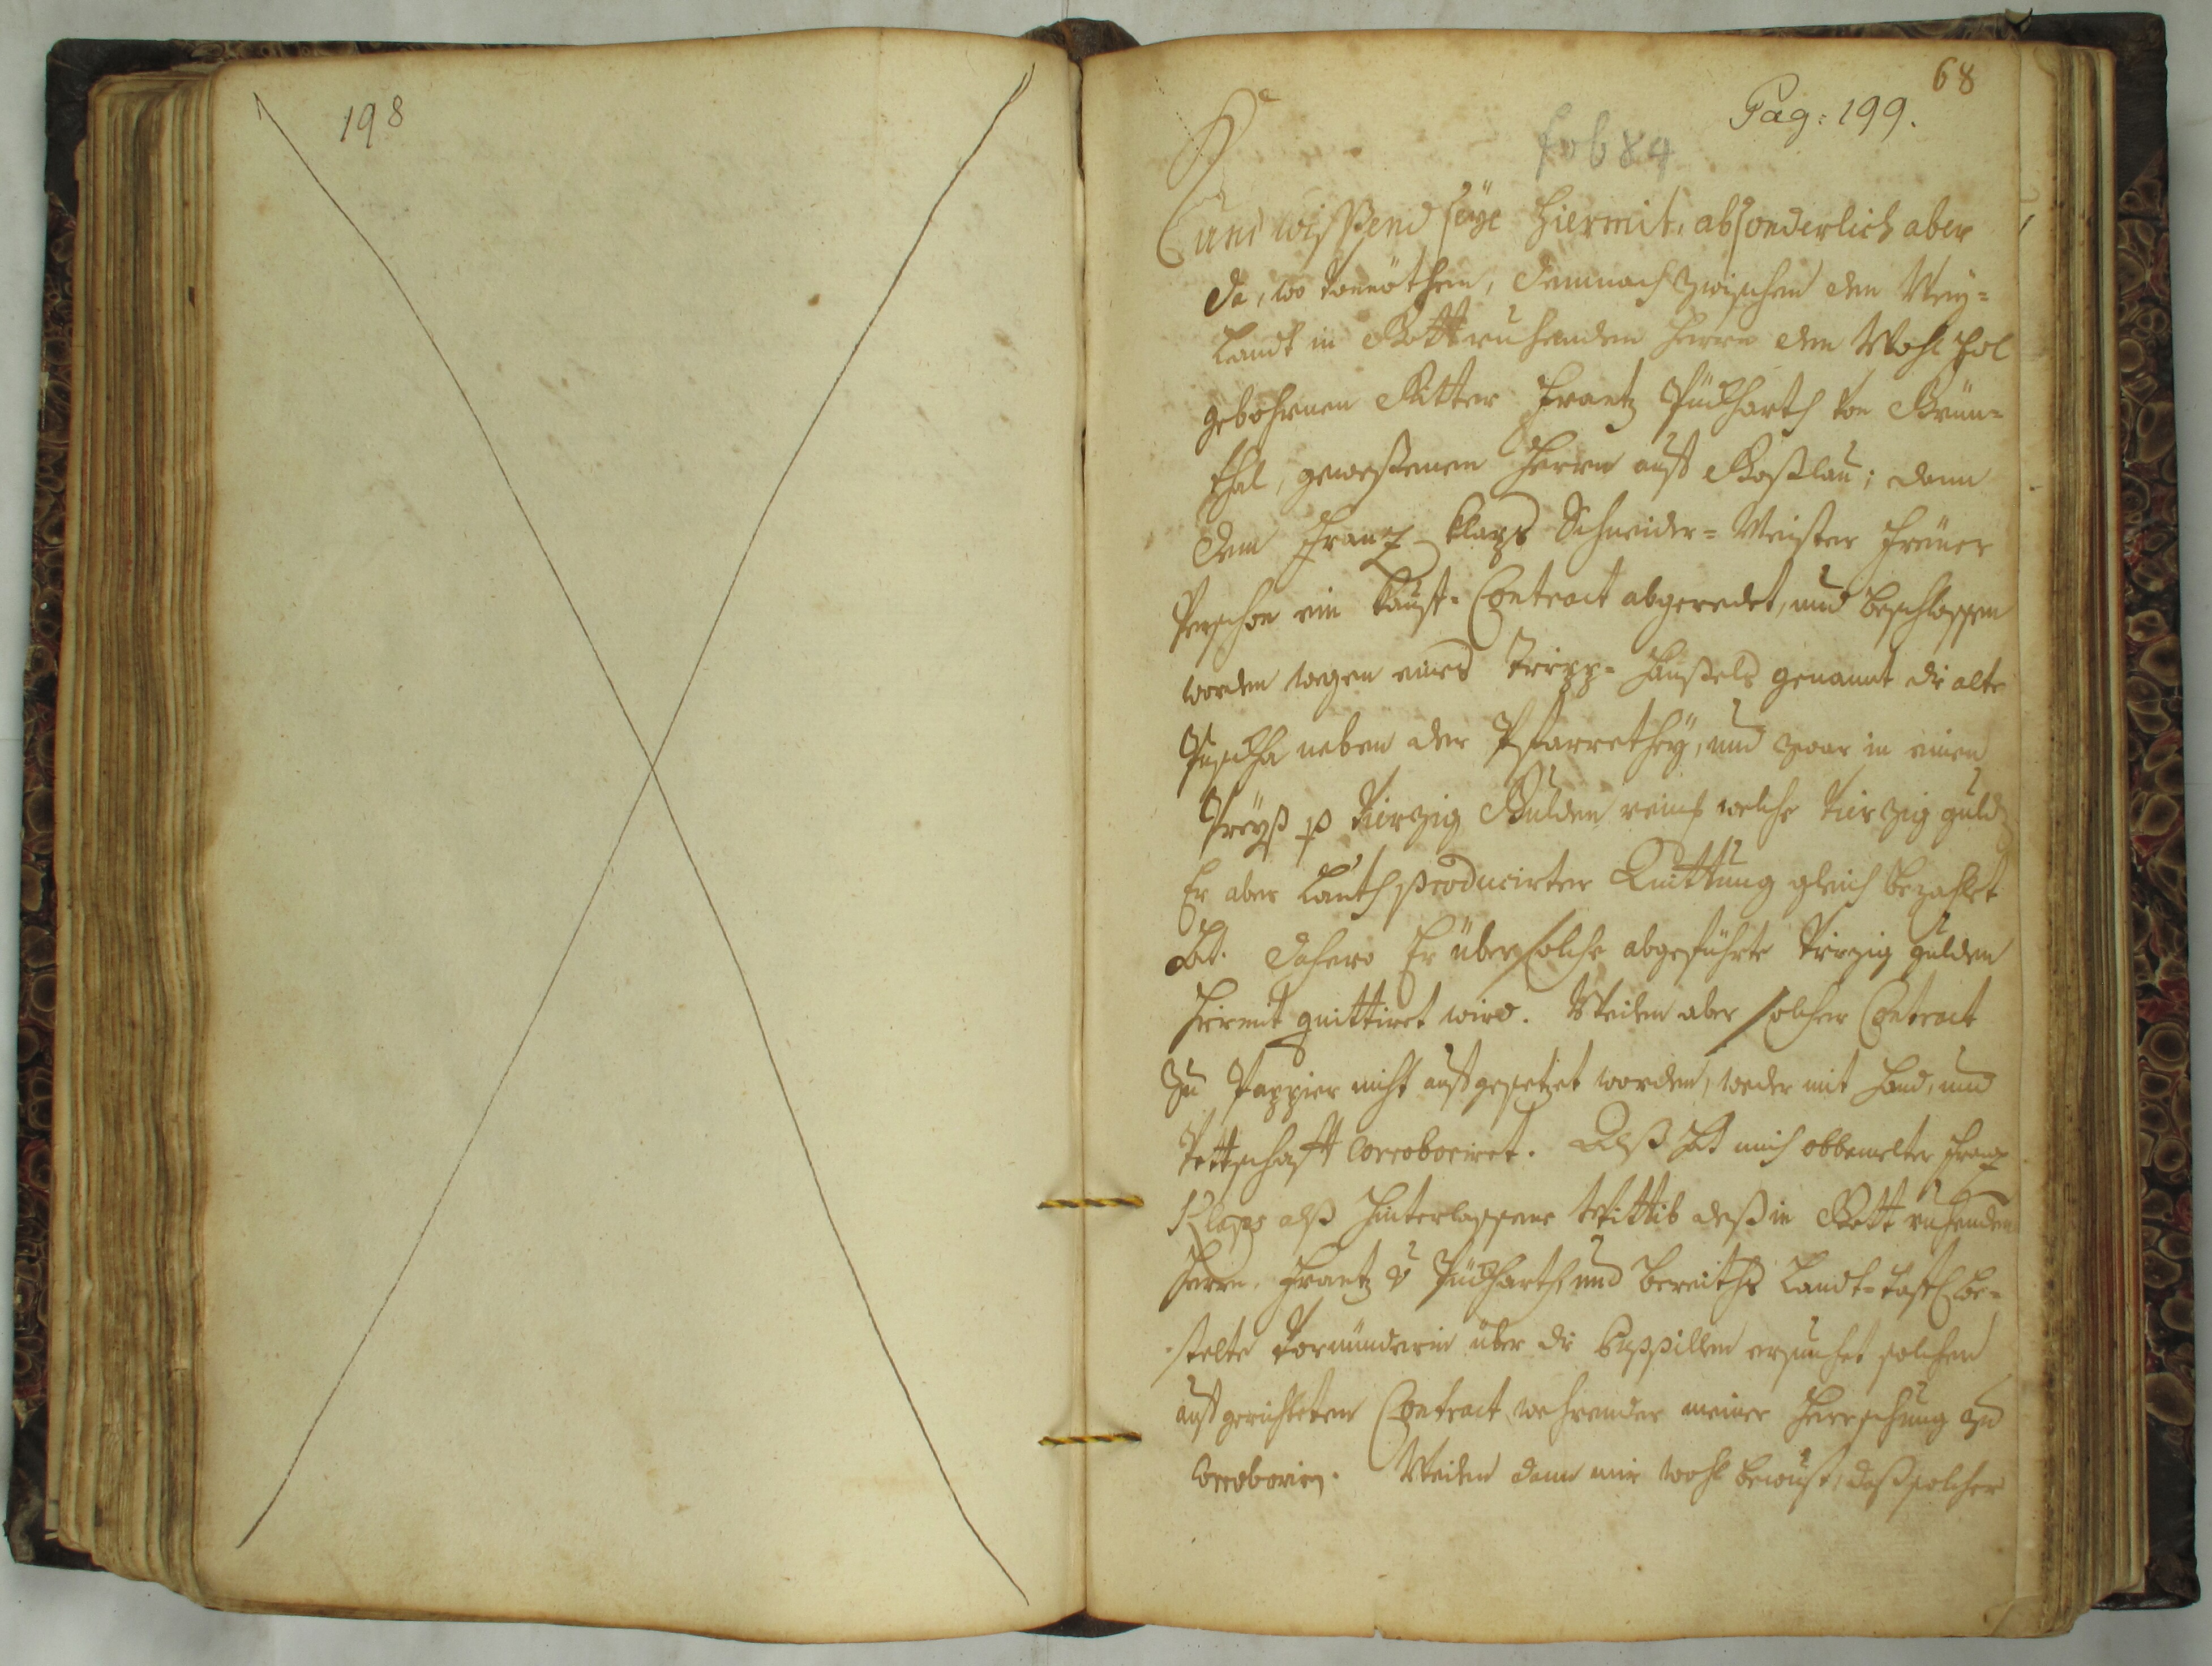 198
68
Pag: 199.
fol 84
Kund wissend seye hiermit, absonderlich aber
da, wo vonnöthen, demnach zwischen dem Wey=
landt in Gott ruhenden Herrn dem Wohl Edl
gebohrnen Ritter Frantz Pückharth von Grün=
thal, geweßenen Herrn auff Boßlau; dann
dem Frantz Klaps Schneider=Meister
ein Kauff=Contract abgeredet, und beschlossen
worden wegen eines Häußels genannt die alte
neben der Pfarrethey, und zwar in einen
Preyß p Vierzig Gulden reinß welche vierzig guld
Er aber lauth producirter Quittung gleich bezahlet
hat. Dahero Er über solche abgeführte Vierzig gulden
hiermit quittiret wird. Weilen aber solcher Contract
zu Pappier nicht auffgesetzet worden, weder mit Hand, und
Pettschafft corroboriret. Alß hat mich obbemelter Frantz
Klaps alß hinterlassene Wittib deß in Gott ruhenden
Herrn Frantz v Pückharth, und bereiths Landt=Taffl be=
stelte Vormünderin über die Puppillen ersuchet solchen
auffgerichteten Contract wehrender meiner Herrschung zu
corroborirn. Weilen dann mir wohl bewust, daß solcher